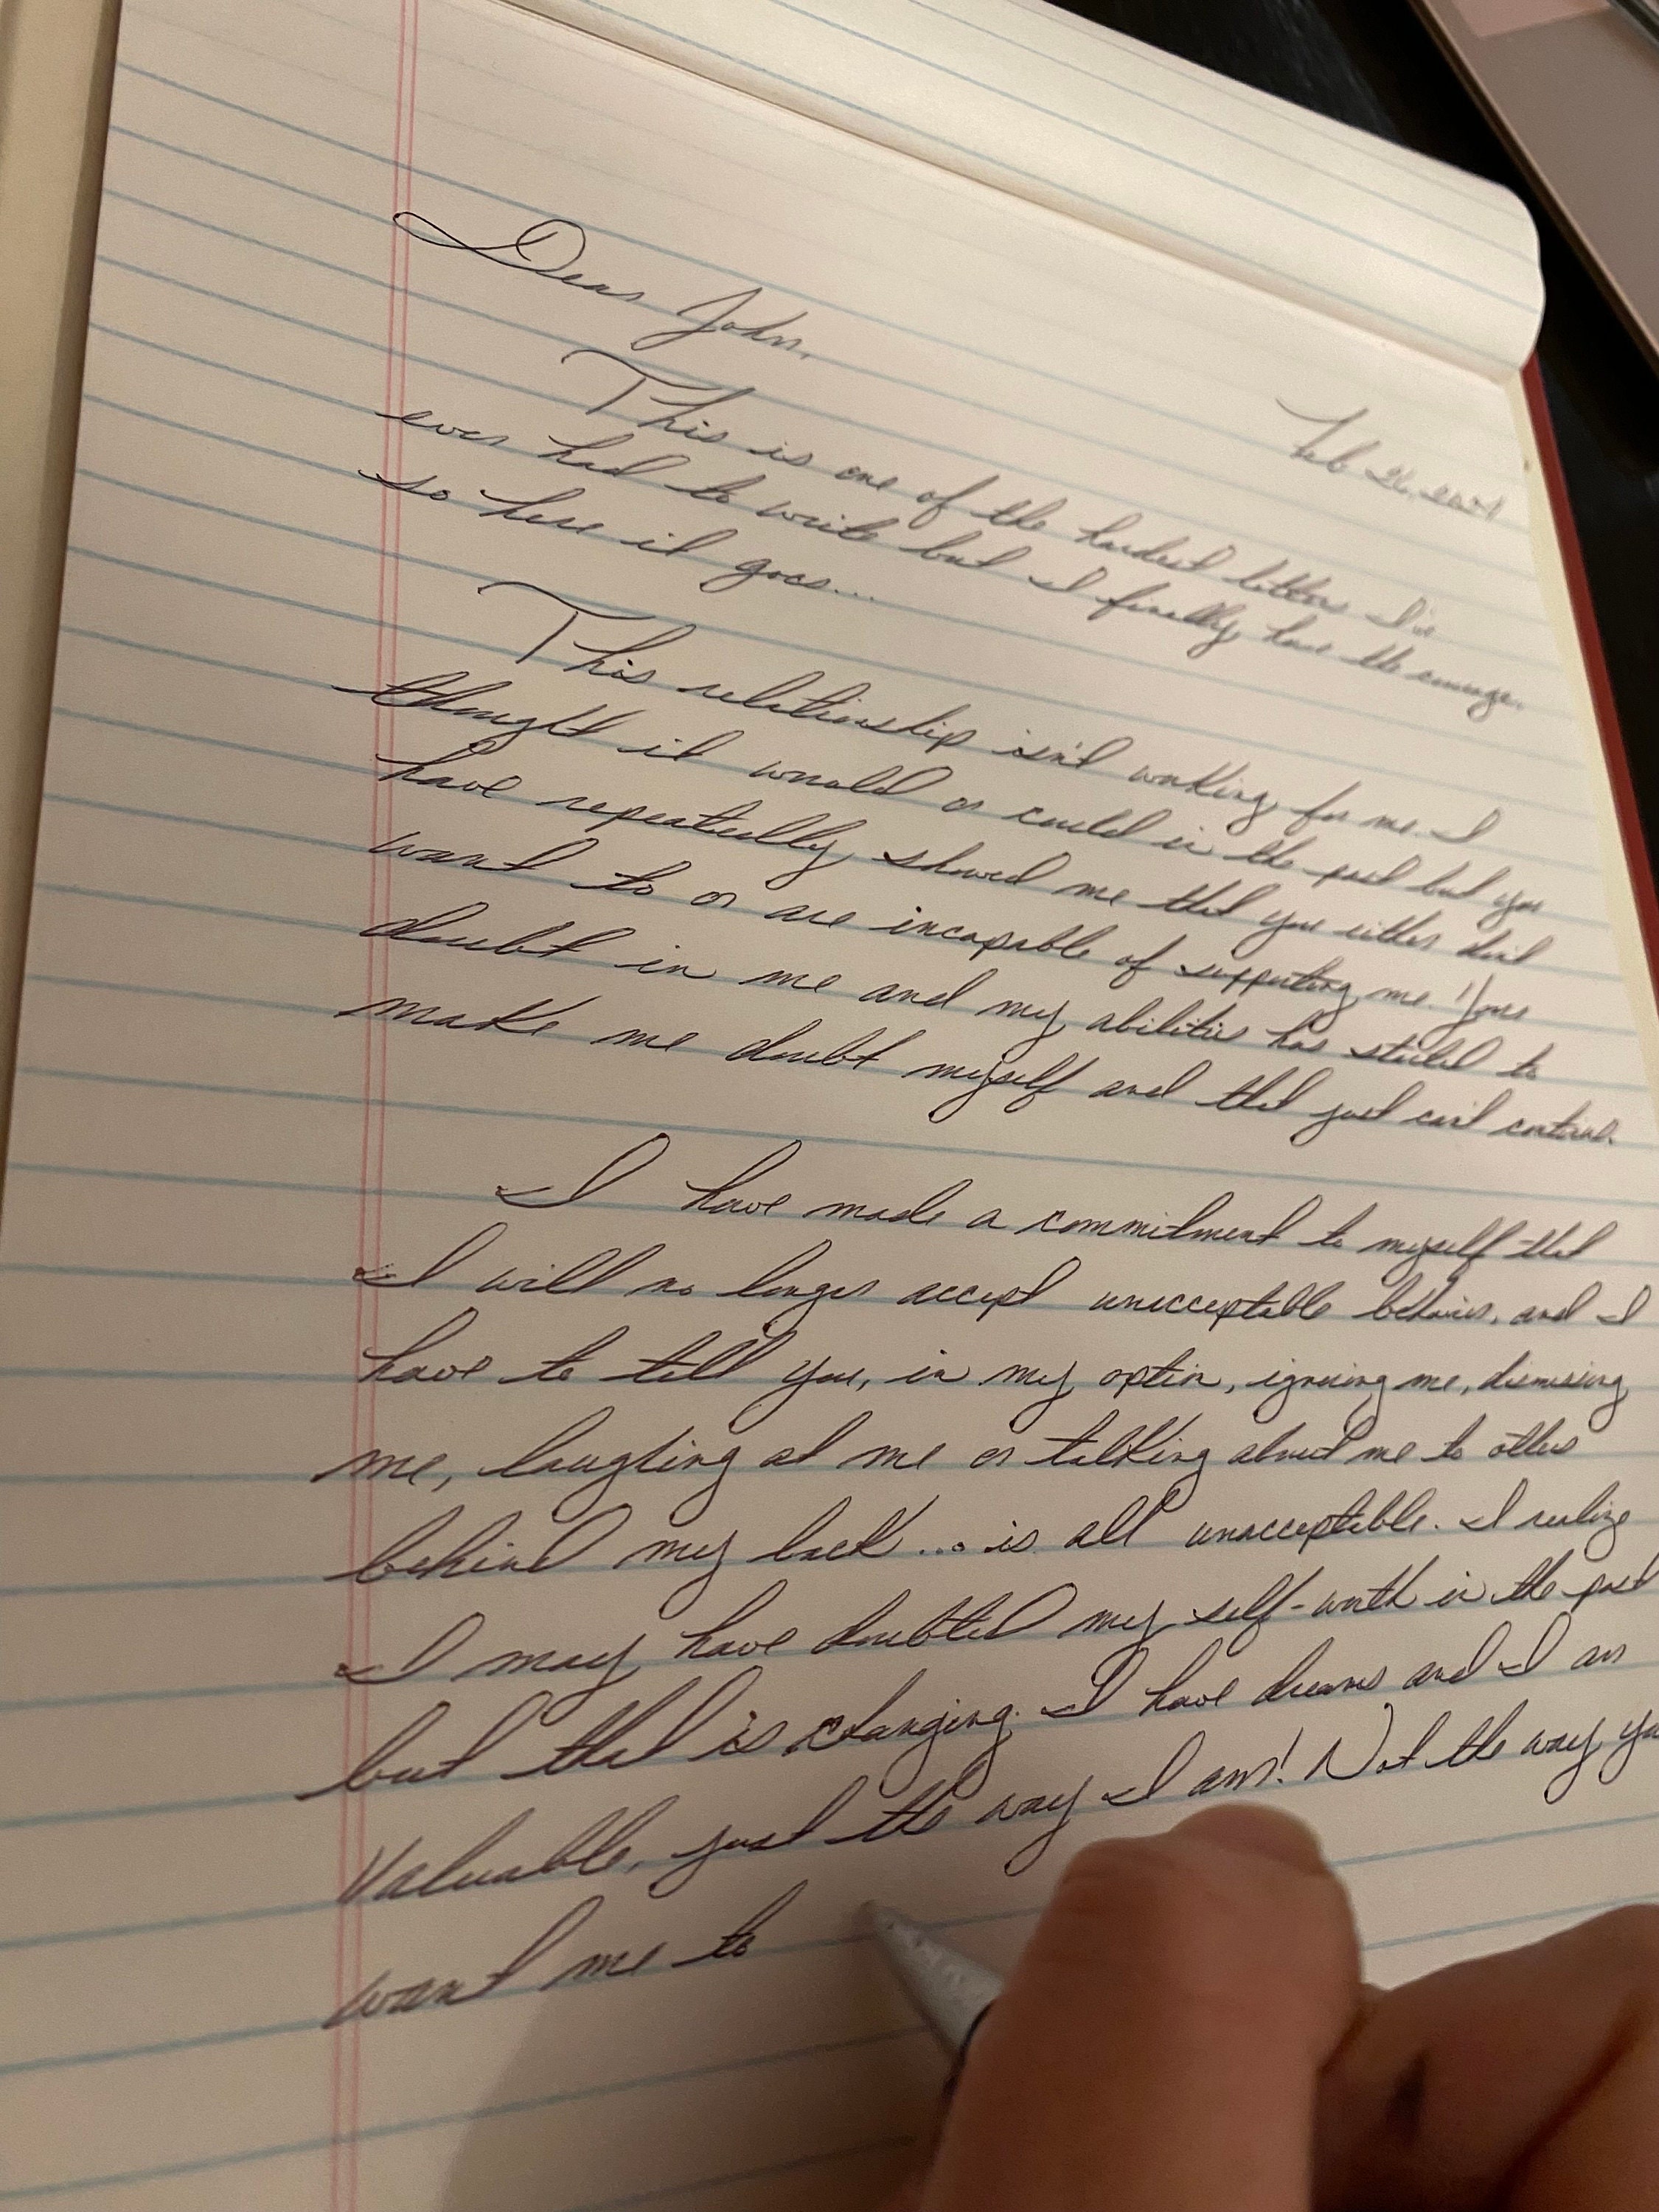 Feb 26, 2021
Dear John,
This is one of the hardest letters I've
ever had to write but I finally have the courage,
so here it goes...
This relationship isn't working for me. I
thought it would or could in the past but you
have repeatedly showed me that you either don't
want to or are incapable of supporting me. Your
doubt in me and my abilities has started to
make me doubt myself and that just can't continue.
I have made a commitment to myself that
I will no longer accept unacceptable behavior, and I
have to tell you, in my option, ignoring me, dismissing
me, laughing at me or talking about me to others
behind my back... is all unacceptable. I realize
I may have doubted my self-worth in the past
but that is changing. I have dreams and I am
Valuable, just the way I am! Not the way yo
want me to